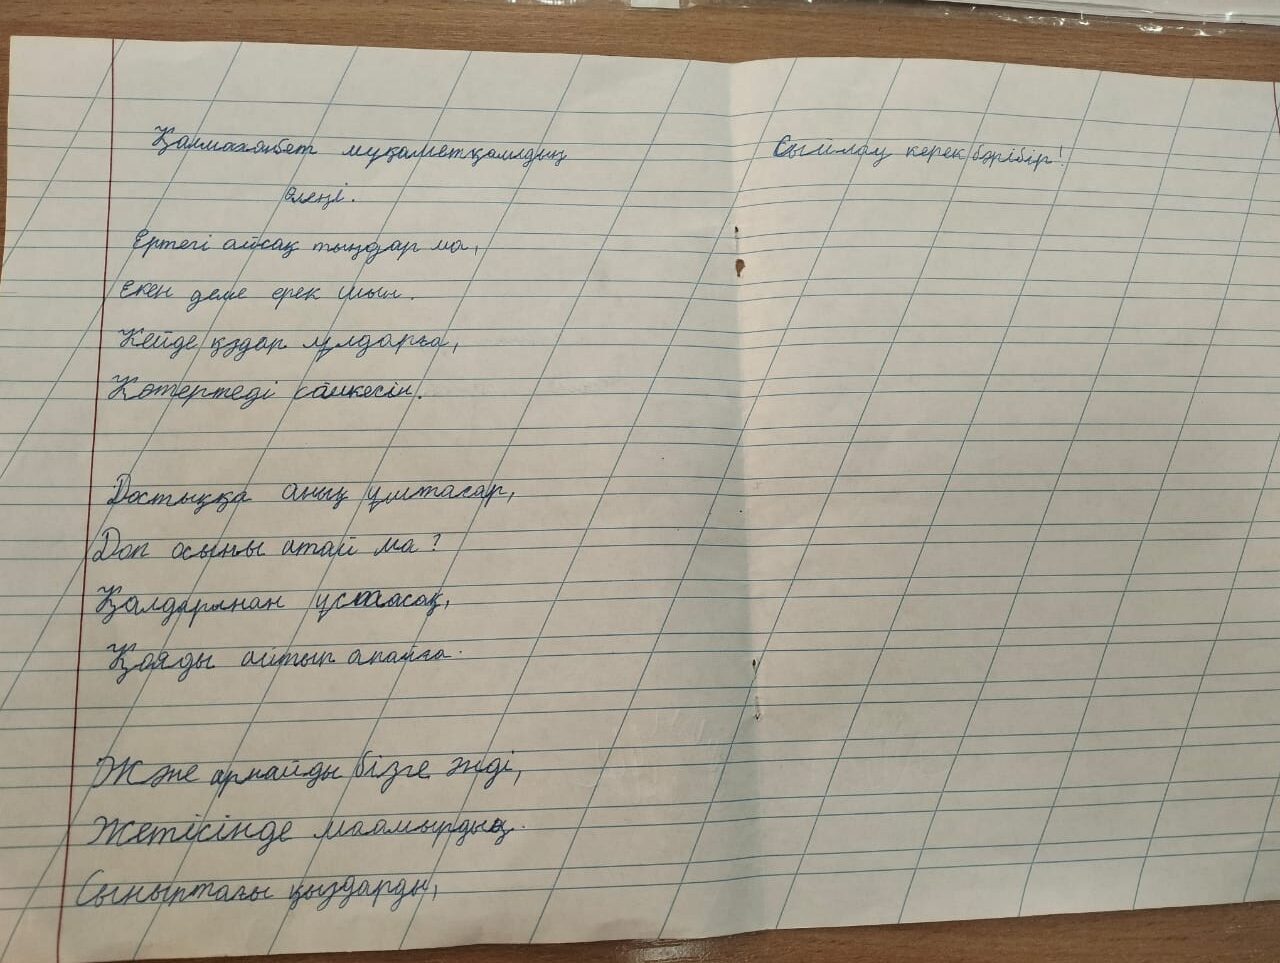 Қалмаханбет мұқаметқамлдың
өлеңі.
Ертегі айсақ тыңдар ма,
екен деме ерек шын.
Кейде қздар ұлдарға,
Көтертеді сөмкесін.
Достыққа анық ұштасар,
Доп осыны атай ма?
Қолдарынан ұстасақ,
Қояды айтып апайға.
Және арнайды бізге әнді,
Жетісінде маамырдың.
Сыныптағы қыздарды,
Сыйлау керек бәрібір!